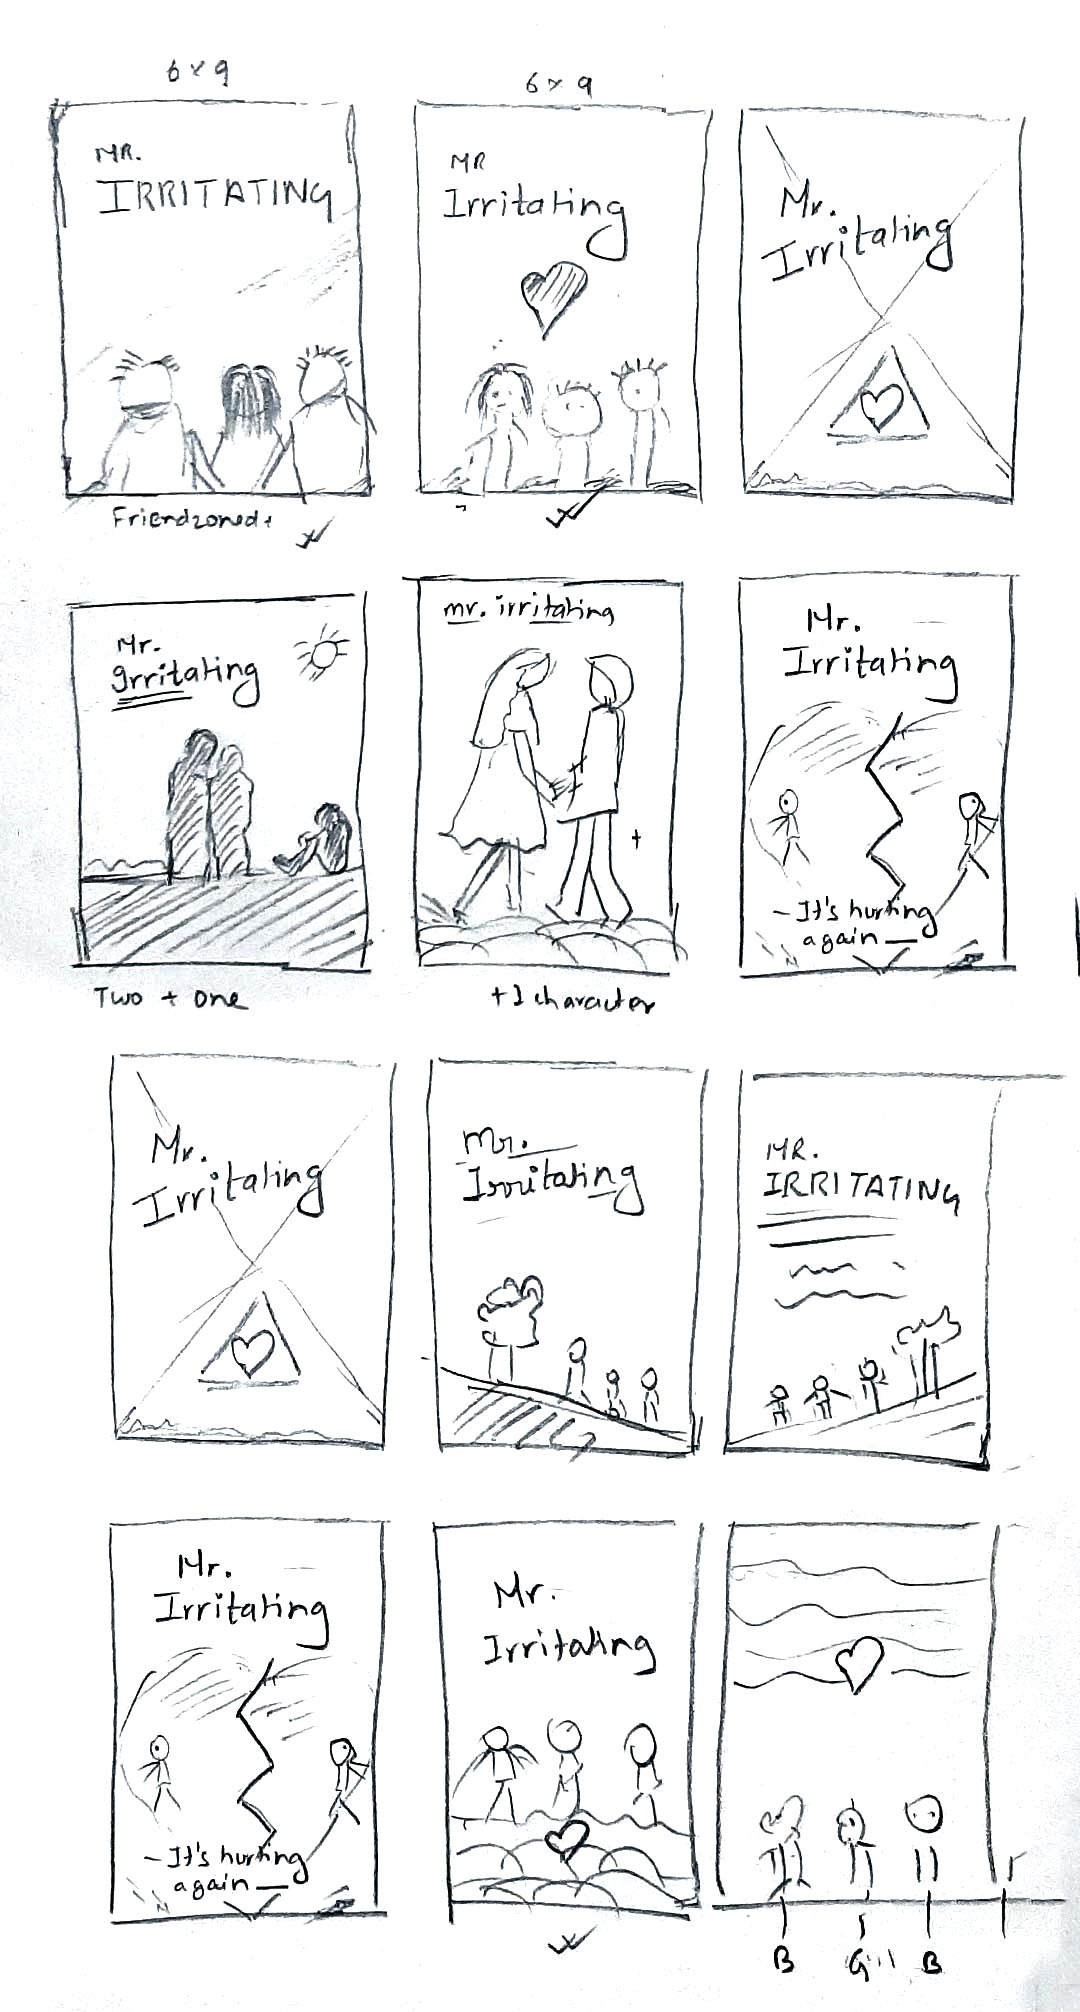 6 x 9
MR.
IRRITATING
Friendzoned
6 x 9
MR
Irritating
Mr.
Irritating
Mr.
Irritating
Two + one
mr. irritating
+
+1 character
Mr.
Irritating
- It's hurting
again
Mr.
Irritating
Mr.
Irritating
MR.
IRRITATING
Mr.
Irritating
- It's hurting
again
Mr.
Irritating
B G B